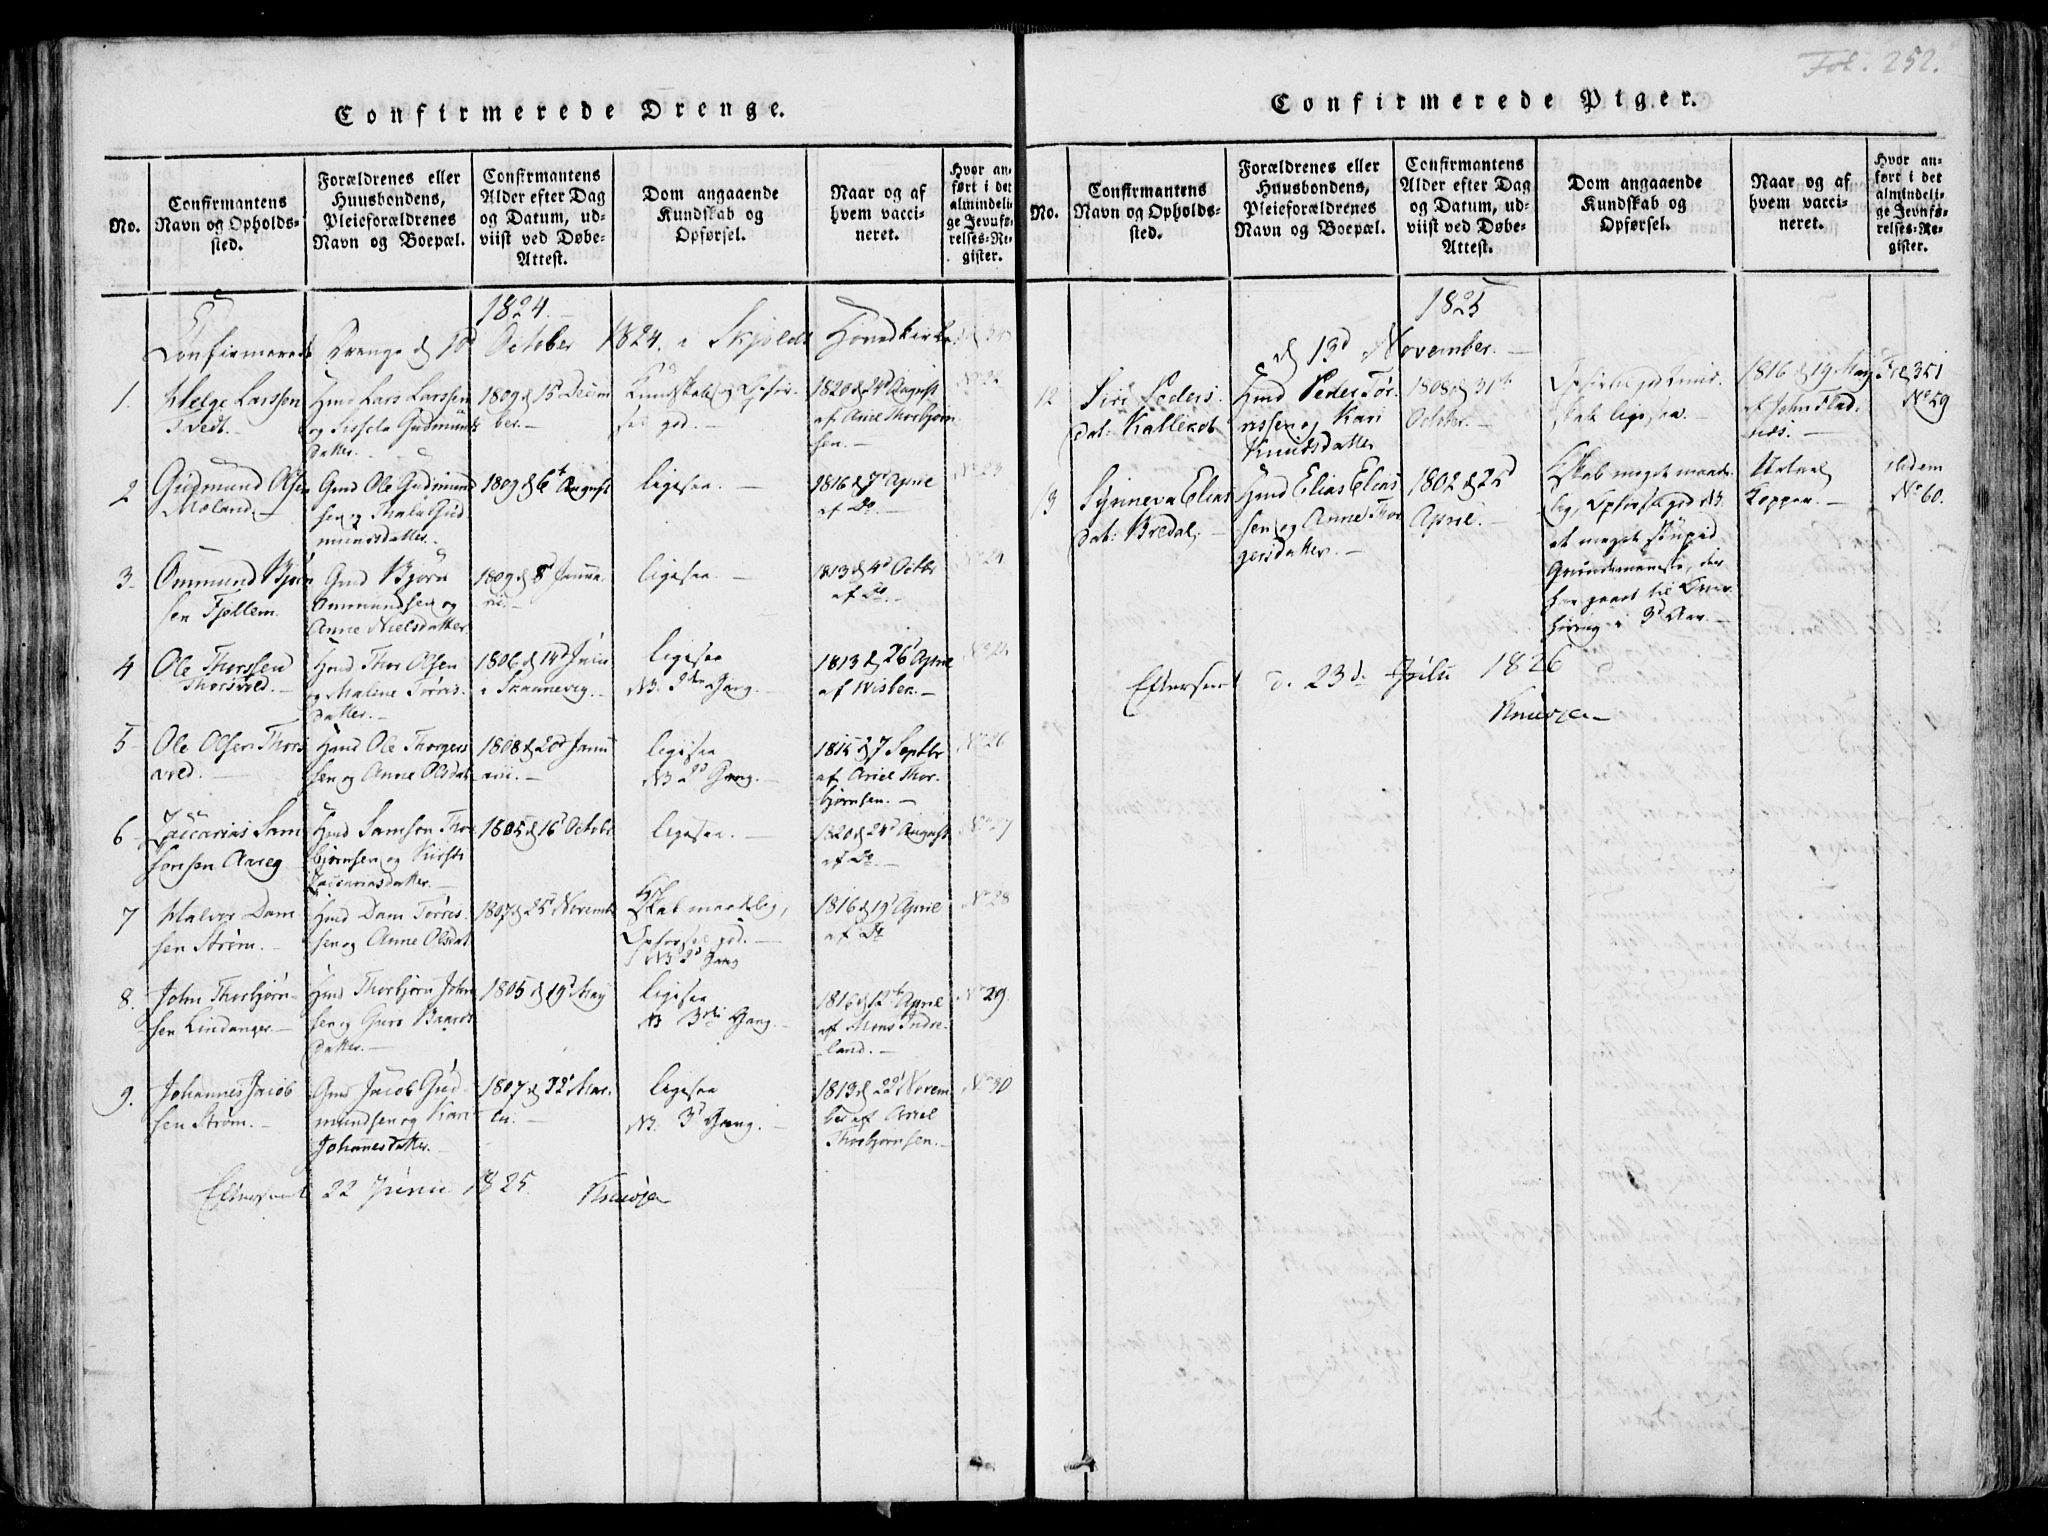 Fol. 252.
Confirmerede Drenge.
No.
Confirmantens
Navn og Opholds-
sted.
Forældrenes eller
Huusbondens,
Pleieforældrenes
Navn og Boepæl.
Confirmantens
Alder efter Dag
og Datum, ud-
viist ved Døbe-
Attest.
Dom angaaende
Kundskab og
Opførsel.
Naar og af
hvem vacci-
neret.
Hvor an-
ført i det
almindeli-
ge Jevnfø-
relses-Re-
gister.
1824.
Confirmerede Drenge d 10d October 1824 i Skjolds Hovedkirke
1. Helge Larssen
Tvedt.
Gmd Lars Larssen
og Sissela Gudmunds
datter.
1809 d 15d Decem
ber.
Kundskab og Opfør-
sel god.
1820 d 24d August
af Ariel Thorbjørn
sen.
No 22
2 Gudmund Olsen
Moland.
Gmd Ole Gudmund
sen og Mala Gud
mundsdatter.
1809 d 6t August
ligesaa.
1816 d 7d April
af Do.
No 23
3. Ommund Bjørn
sen Fjellem.
Gmd Bjørn
Ommundsen og
Anne Nielsdatter
1809 d 8d Janua
rii.
ligesaa.
1813 d 4d Octbr
af Do.
No 24
4 Ole Thorssen
Thorsved.
Hmd Thor Olsen
og Malene Tørris
datter.
1806 d 14d Juni
i Skaanevig.
ligesaa
NB. Gang.
1813 d 26d April
af Wisbek.
No 25
5 Ole Olsen Thors
ved.
Hmd Ole Thorgers
sen og Anne Olsdat
1808 d 20d Janu
arii.
ligesaa
NB 2d Gang.
1815 d 7 Septbr
af Ariel Thor-
bjørnsen.
No 26
6 Zaccarias Sam
sonsen Aareg
Hmd Samson Thor
bjørnsen og Kirsti
Zaccariasdatter.
1805 d 16d Octobr
ligesaa.
1820 d 24d August
af Do.
No 27
7 Halvor Dam
sen Strøm.
Hmd Dam Tørres
sen og Anne Olsdat
1807 d 25d Novemb
Kskab maadelig,
Opførsel god.
NB 2d Gang
1816 d 19d April
af Do
No 28
8. John Thorbjørn-
sen Lindanger
Hmd Thorbjørn John
sen og Guro Baards
datter.
1805 d 19d May
ligesaa
NB 3die Gang.
1816 d 12te April
af Mons Indre-
land.
No 29.
9. Johannes Jacob
sen Strøm.
Gmd Jacob Gud
mundsen og Kari
Johannesdatter.
1807 d 22d Mar-
tii.
ligesaa
NB. 3d Gang.
1813 d 22d Novem
ber af Ariel
Thorbjørnsen.
No 30
Efterseet 22 Junii 1825.
Confirmerede Piger.
No.
Confirmantens
Navn og Opholds-
sted.
Forældrenes eller
Huusbondens,
Pleieforældrenes
Navn og Boepæl.
Confirmantens
Alder efter Dag
og Datum, ud-
viist ved Døbe-
Attest.
Dom angaaende
Kundskab og
Opførsel.
Naar og af
hvem vacci-
neret.
Hvor an-
ført i det
almindeli-
ge Jevnfø-
relses-Re-
gister.
1825
d 13d November.
12 Siri Peders
dat:
Hmd Peder Tør-
rissen og Kari
Knudsdatter
1808 d 31te
October.
Opførsel god Kund-
skab ligesaa.
1816 d 19 May
af John
Fol 351
No 59
13 Synneva Elias
dat: Bredal.
Hmd Elias Elias
sen og Anne Thor
gersdatter.
1802 d 25d
April.
Kskab meget maade-
lig, Opførsel god NB
et meget stupid
har gaaet til
i 3d Aar.
Naturl
Kopper.
ibidem
No 60.
Efterseet d. 23d Julii 1826